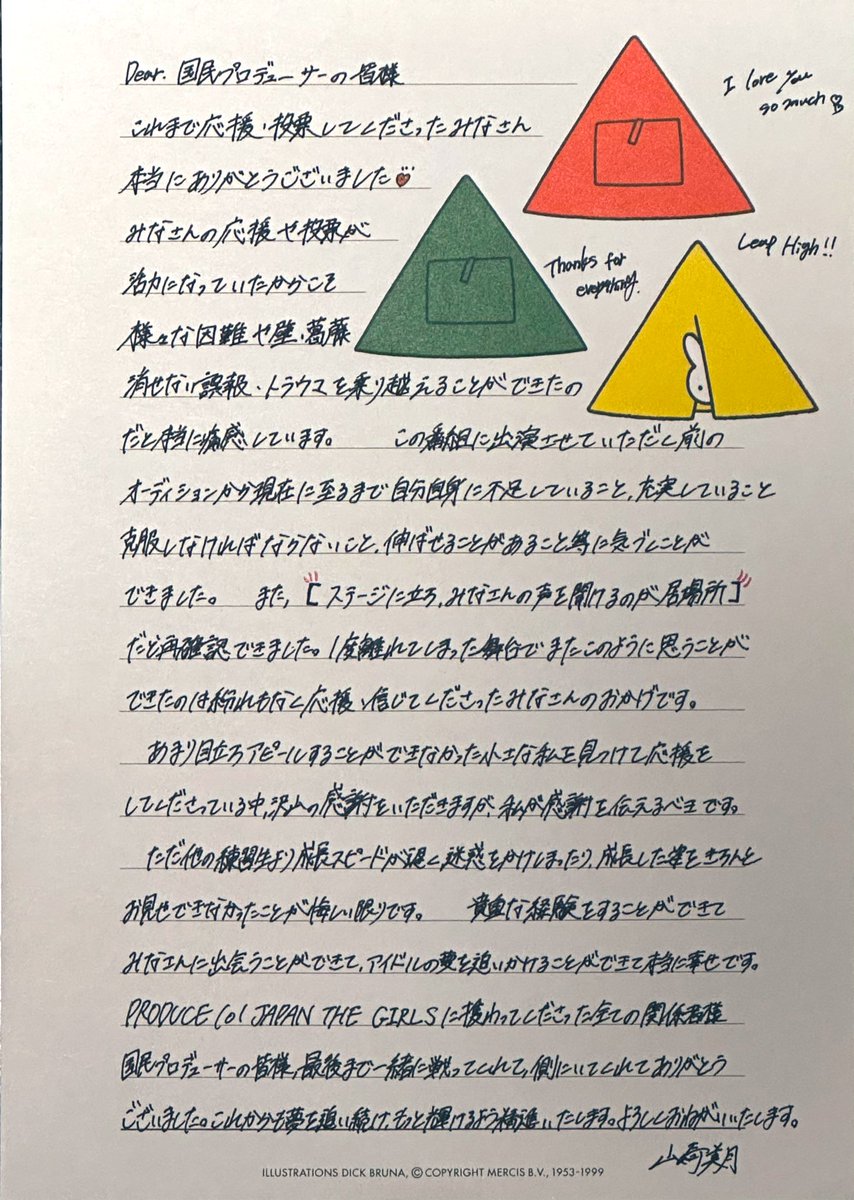 Dear. 国民プロデューサーの皆様
I love you
so much
これまで応援、投票してくださったみなさん
本当にありがとうございました
みなさんの応援や投票が
Leap High!!
Thanks for
everything.
活力になっていたからこそ
様々な困難や壁、葛藤
消せない誤報・トラウマを乗り越えることができたの
だと本当に痛感しています。 この番組に出演させていただく前の
オーディションから現在に至るまで自分自身に不足していること、充実していること
克服しなければならないこと、伸ばせることがあること等に気づくことが
できました。 また、[ステージに立ち、みなさんの声を聞けるのが居場所]
だと再確認できました。1度離れてしまった舞台でまたこのように思うことが
できたのは紛れもなく応援、信じてくださったみなさんのおかげです。
あまり目立ちアピールすることができなかった小さな私を見つけて応援を
してくださっている中、沢山の感謝をいただきますが、私が感謝を伝えるべきです。
ただ他の練習生より成長スピードが遅く迷惑をかけしまったり、成長した姿をきちんと
お見せできなかったことが悔しい限りです。 貴重な経験をすることができて
みなさんに出会うことができて、アイドルの夢を追いかけることができて本当に幸せです。
PRODUCE 101 JAPAN THE GIRLSに携わってくださった全ての関係者様
国民プロデューサーの皆様、最後まで一緒に戦ってくれて、側にいてくれてありがとう
ございました。これからも夢を追い続け、もっと輝けるよう精進いたします。よろしくおねがいいたします。
山﨑美月
ILLUSTRATIONS DICK BRUNA, © COPYRIGHT MERCIS B.V., 1953-1999